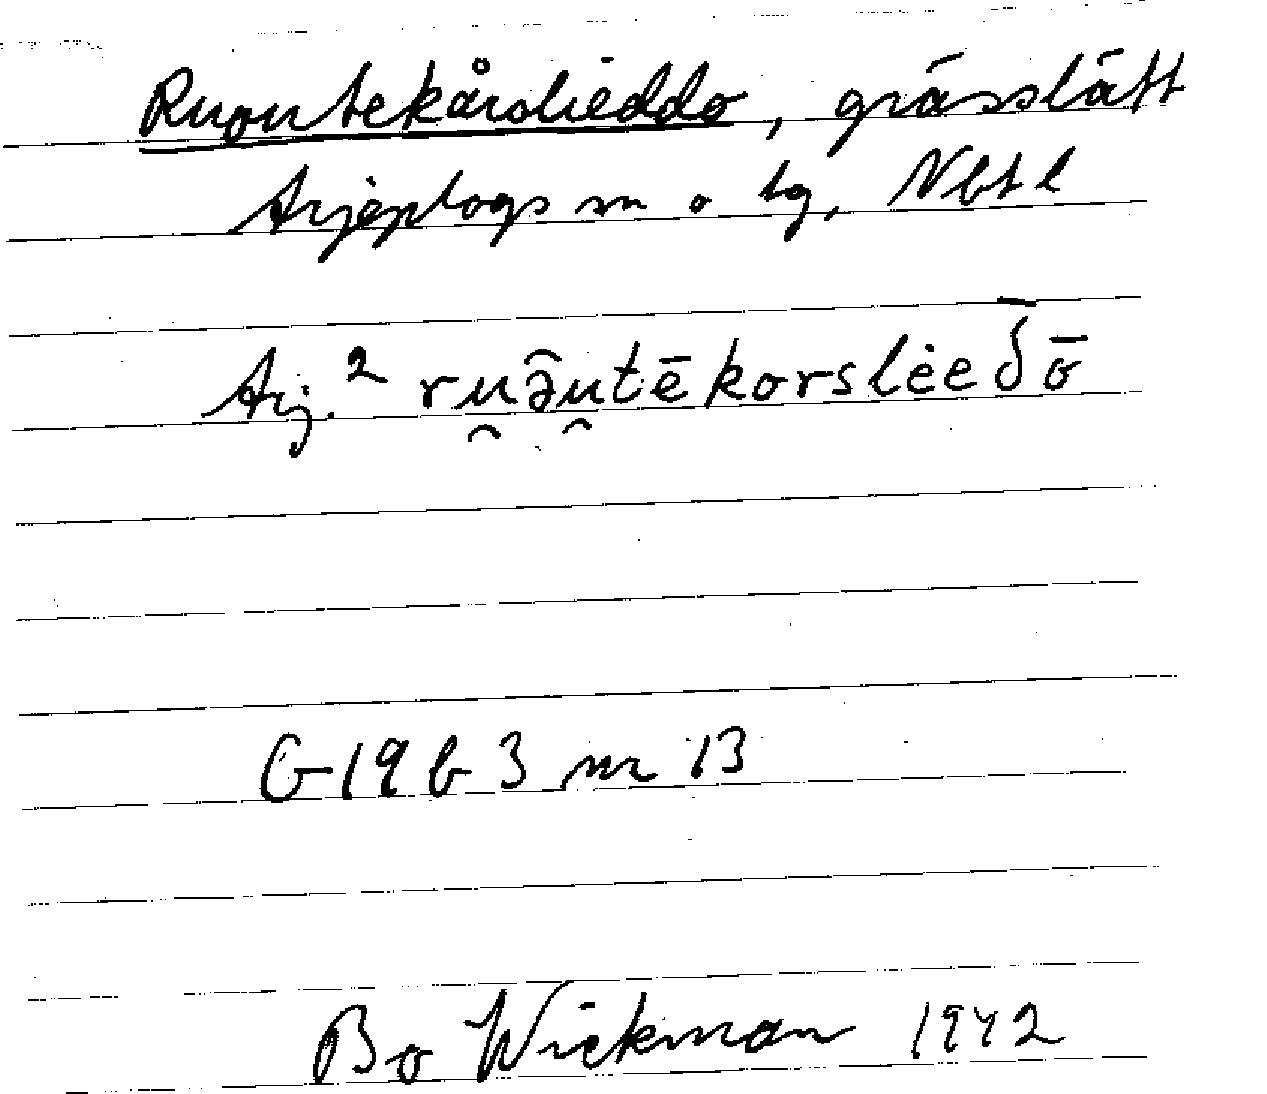 Ruoutekårslieddo, grässlätt
Arjeplogs sn o tg, Nbt l
Arj.² ru̯ə̑u̯tēkorslėeδ̄ō
G 19 b 3 nr 13
Bo Wickman 1942